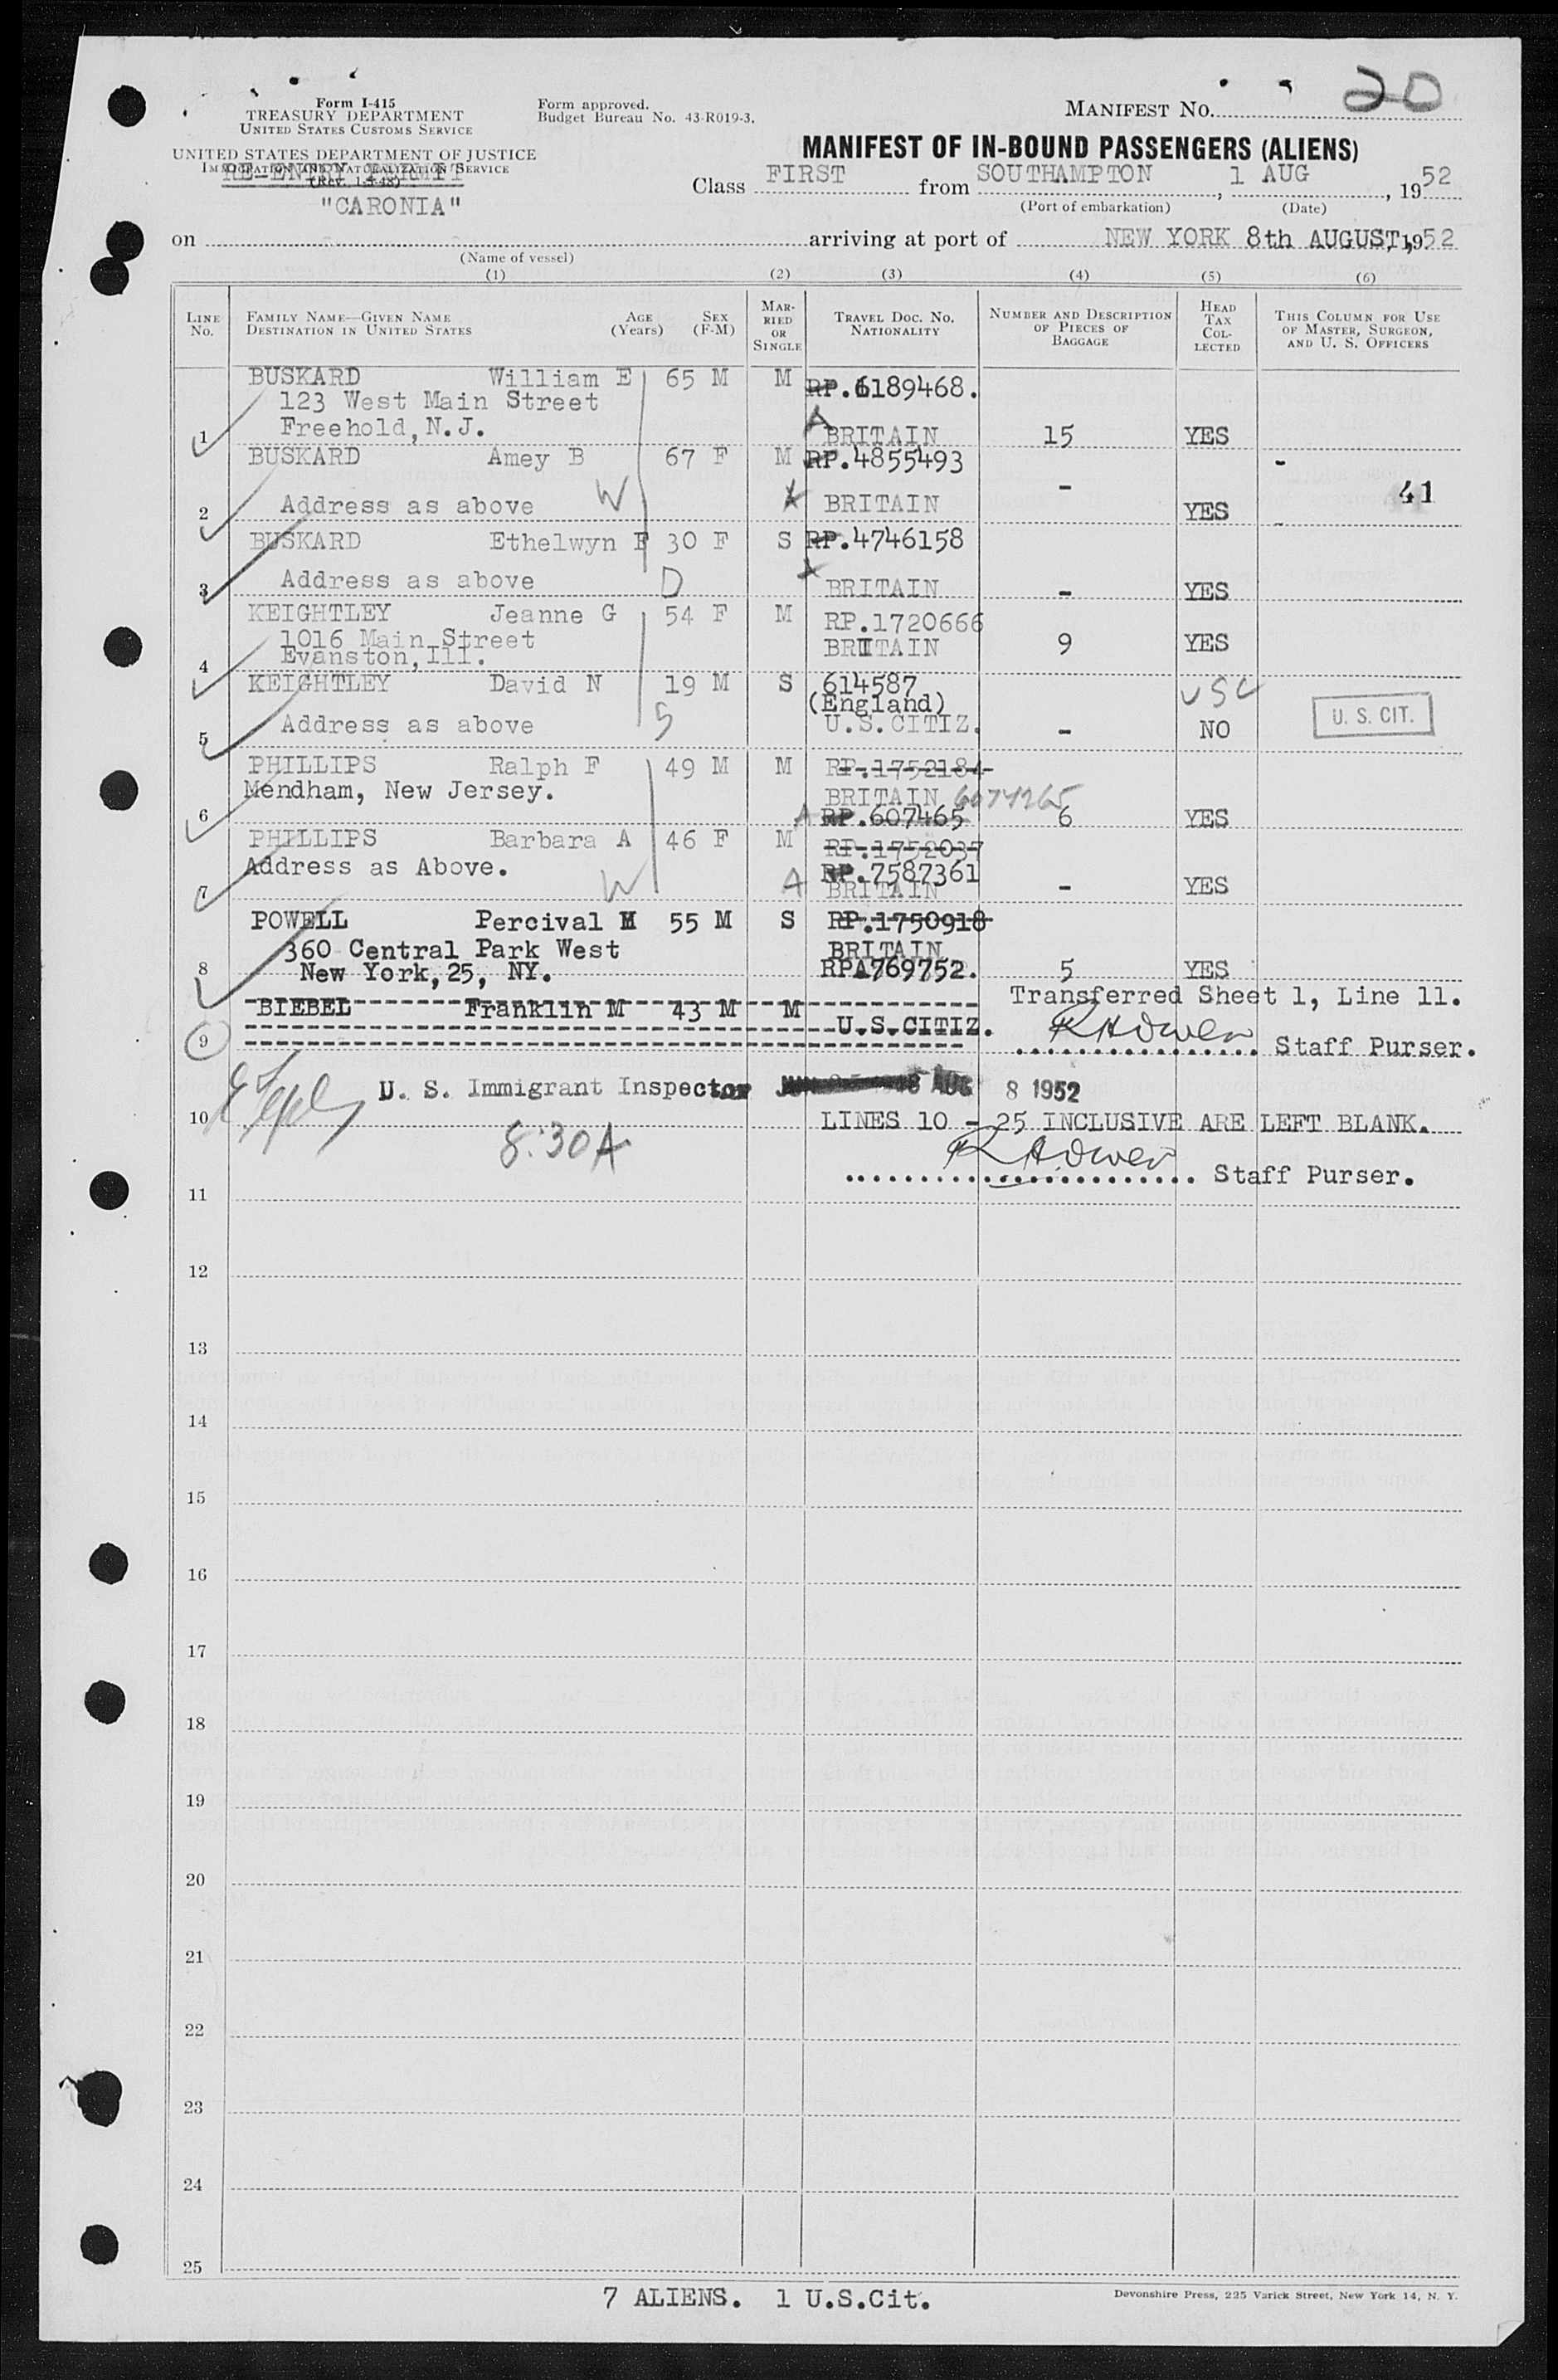 20
Form I-415
TREASURY DEPARTMENT
UNITED STATES CUSTOMS SERVICE
Form approved.
Budget Bureau No. 43-R019-3.
MANIFEST NO.
UNITED STATES DEPARTMENT OF JUSTICE
IMMIGRATION AND NATURALIZATION SERVICE
RE-ENTRY PERMIT
(Rev. 1-1-48)
MANIFEST OF IN-BOUND PASSENGERS (ALIENS)
Class FIRST from SOUTHAMPTON, 1 AUG, 1952
(Port of embarkation) (Date)
"CARONIA"
on arriving at port of NEW YORK 8th AUGUST, 1952
(Name of vessel)
(1) (2) (3) (4) (5) (6)
LINE NO.
FAMILY NAME—GIVEN NAME AGE SEX
DESTINATION IN UNITED STATES (Years) (F-M)
MARRIED OR SINGLE
TRAVEL DOC. NO. NATIONALITY
NUMBER AND DESCRIPTION OF PIECES OF BAGGAGE
HEAD TAX COLLECTED
THIS COLUMN FOR USE OF MASTER, SURGEON, AND U. S. OFFICERS
BUSKARD William E 65 M M RP.6189468.
123 West Main Street
Freehold, N.J. A
1 BRITAIN 15 YES
BUSKARD Amey B 67 F M RP.4855493 -
41
2 Address as above W BRITAIN - YES
BUSKARD Ethelwyn F 30 F S RP.4746158
3 Address as above D BRITAIN - YES
KEIGHTLEY Jeanne G 54 F M RP.1720666
1016 Main Street BRITAIN 9 YES
4 Evanston, Ill.
KEIGHTLEY David N 19 M S 614587 USC
(England)
5 Address as above S U.S.CITIZ. - NO U. S. CIT.
PHILLIPS Ralph F 49 M M RP.1752184
Mendham, New Jersey. BRITAIN 6074265
6 A RP.607465 6 YES
PHILLIPS Barbara A 46 F M RP.1752037
Address as Above. RP.7587361
7 W A BRITAIN - YES
POWELL Percival M 55 M S RP.1750918
360 Central Park West BRITAIN
8 New York, 25, NY. RPA769752. 5 YES
BIEBEL Franklin M 43 M M Transferred Sheet 1, Line 11.
U.S.CITIZ.
9 R H Owen Staff Purser.
U. S. Immigrant Inspector AUG 8 1952
10 LINES 10 - 25 INCLUSIVE ARE LEFT BLANK.
8:30A
R H Owen Staff Purser.
11
12
13
14
15
16
17
18
19
20
21
22
23
24
25
7 ALIENS. 1 U.S.Cit.
Devonshire Press, 225 Varick Street, New York 14, N. Y.